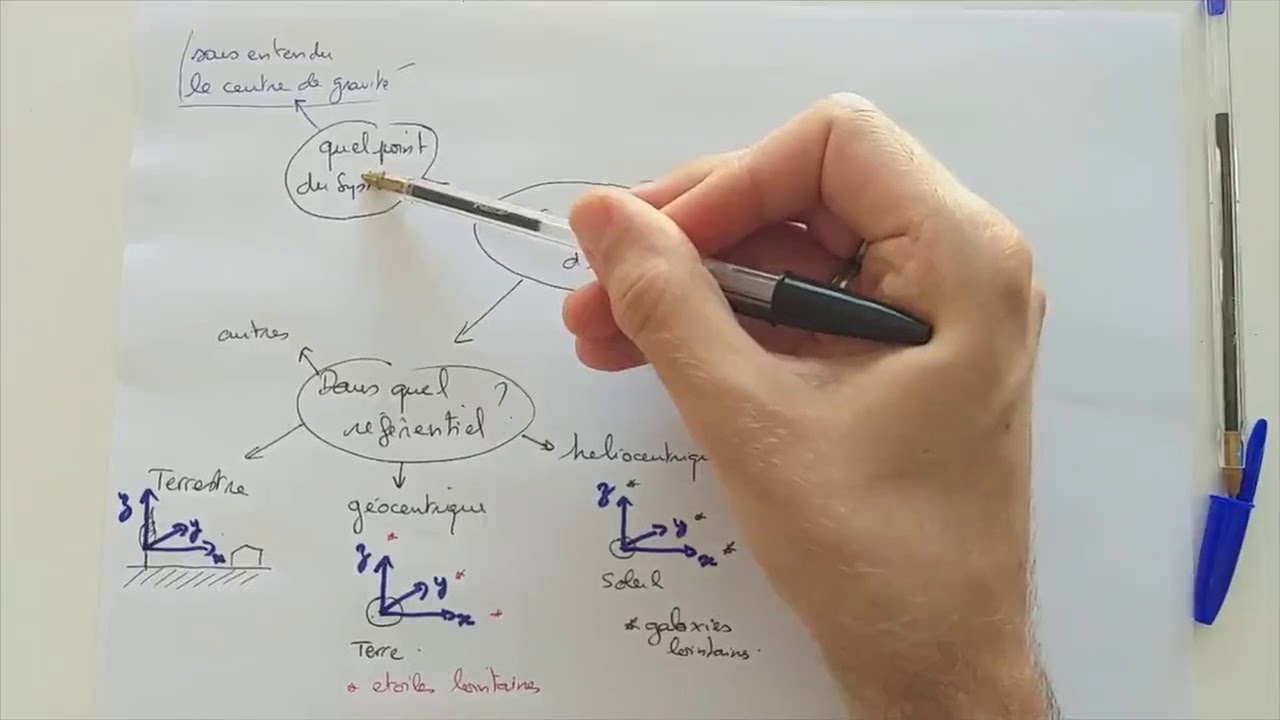 sous entendu
le centre de gravité
quel point
du Sys
d
autres
Dans quel ?
référentiel
Terrestre
z
y
x
géocentrique
z
y
x
Terre.
* etoiles lointaines
heliocentrique
z
y
x
Soleil
* galaxies
lointains.